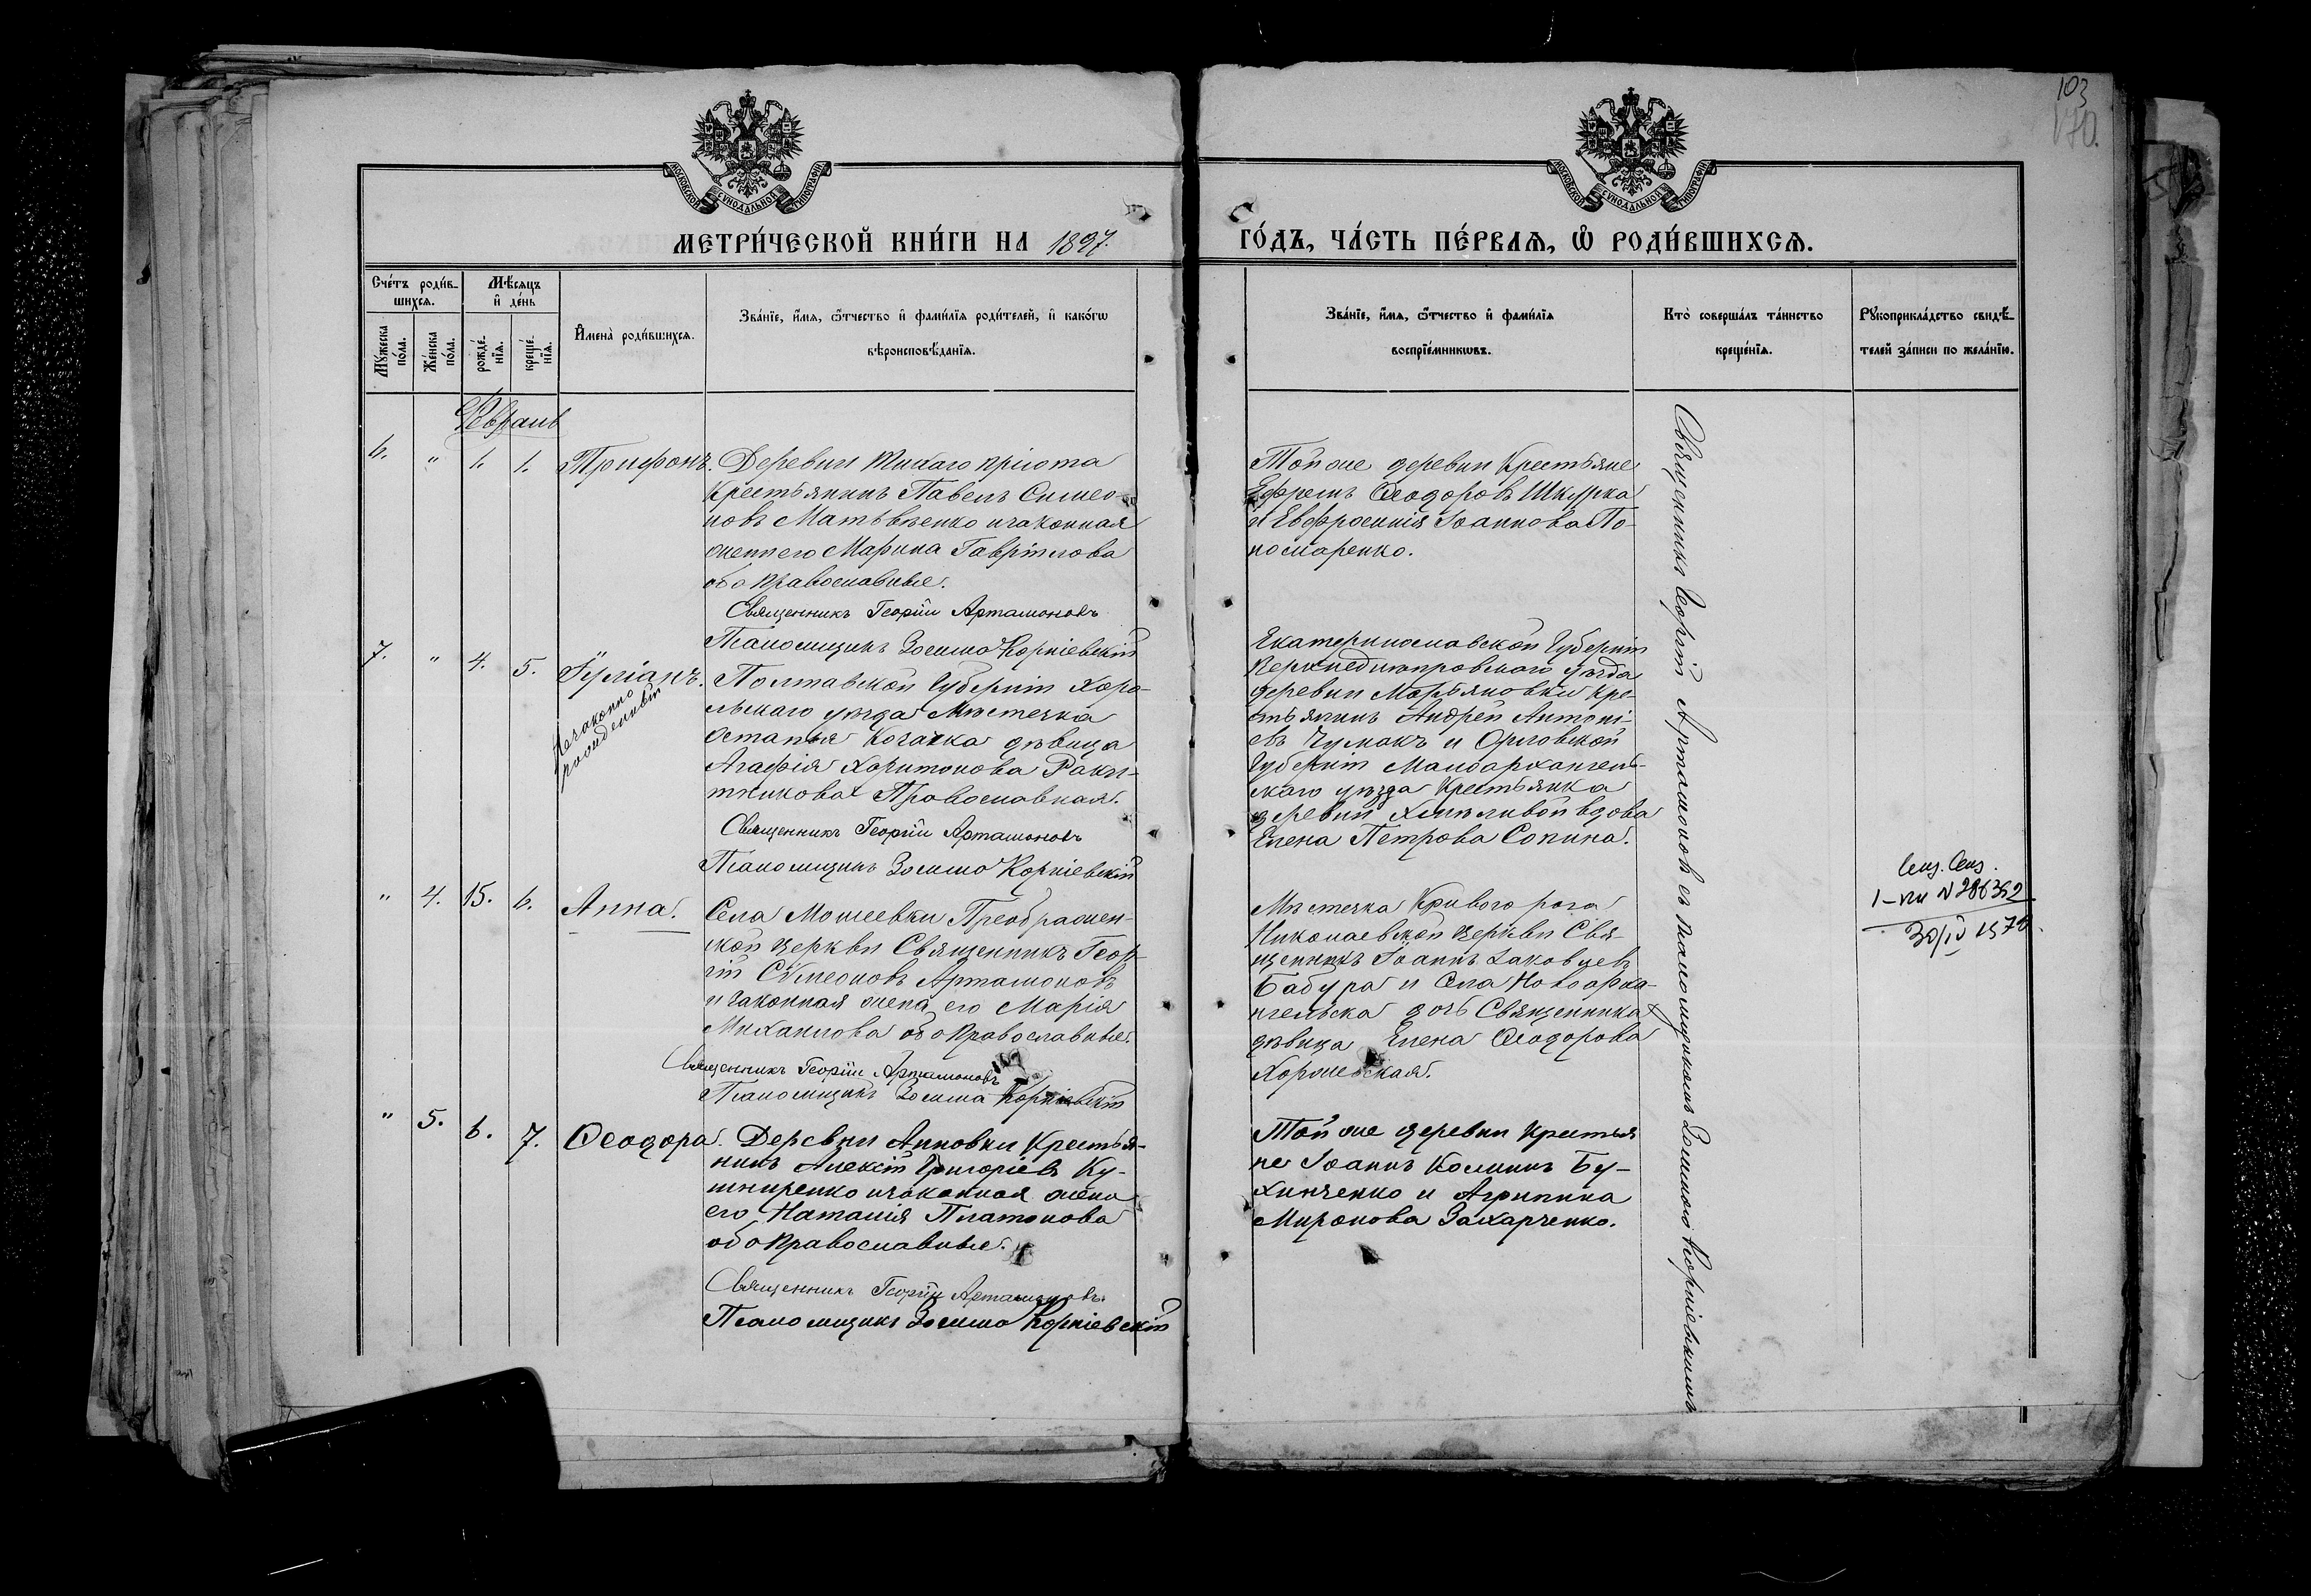 103
170.
МОСКОВСКОЙ СѴНОДАЛЬНОЙ ТИПОГРАФІИ
МОСКОВСКОЙ СѴНОДАЛЬНОЙ ТИПОГРАФІИ
МЕТРИ́ЧЕСКОЙ КНИ́ГИ НА 1897.
ГО́ДЪ, ЧА́СТЬ ПЕ́РВАѦ, Ѡ҆ РОДИ́ВШИХСѦ.
Сче́тъ роди́в-
шихсѧ.
Мꙋ́жеска по́ла.
Же́нска по́ла.
Мѣ́сѧцъ
и҆ де́нь
рожде́-
нїѧ.
креще́-
нїѧ.
И҆мена̀ роди́вшихсѧ.
Зва́нїе, и҆́мѧ, ѻ҆́тчество и҆ фами́лїѧ роди́телей, и҆ како́гѡ
вѣроисповѣ́данїѧ.
Зва́нїе, и҆́мѧ, ѻ҆́тчество и҆ фами́лїѧ
воспрїе́мникѡвъ.
Кто̀ соверша́лъ та́инство
креще́нїѧ.
Рꙋкоприкла́дство свидѣ́-
телей за́писи по жела́нїю.
Февраль
6. " 1. 1. Трифонъ.
Деревни Тихаго пріюта
Крестьянинъ Павелъ Симео-
новъ Матвѣенко и законная
жена его Марина Гавріилова
оба православные.
Священникъ Георгій Артамоновъ
Псаломщикъ Зосима Корніевскій
Той же деревни Крестьяне
Ефремъ Ѳеодоровъ Шкурка
и Евфросинія Іоаннова По-
номаренко.
7. " 4. 5. Іуліанъ.
незаконно
рожденный
Полтавской Губерніи Хоро-
льскаго уѣзда Мѣстечка
Остапья Козачка дѣвица
Агафія Харитонова Ракит-
никова Православная.
Священникъ Георгій Артамоновъ
Псаломщикъ Зосима Корніевскій
Екатеринославской Губерніи
Верхнеднѣпровскаго уѣзда
деревни Марьяновки кре-
стьянинъ Андрей Антоні-
евъ Чумакъ и Орловской
Губерніи Малоархангель-
скаго уѣзда Крестьянка
деревни Хмѣливой вдова
Елена Петрова Сопина.
" 4. 15. 6. Анна.
Села Моисеевки Преображен-
ской церкви Священникъ Геор-
гій Сѵмеоновъ Артамоновъ
и законная жена его Марія
Михаилова оба православные.
Священникъ Георгій Артамоновъ
Псаломщикъ Зосима Корніевскій
Мѣстечка Криваго рога
Николаевской церкви Свя-
щенникъ Іоаннъ Іаковлевъ
Бабура и Села Новоарха-
нгельска дочь Священника
дѣвица Елена Ѳеодорова
Хорошевская.
30/IV 1970.
" 5. 6. 7. Ѳеодора.
Деревни Анновки Крестья-
нинъ Алексій Григоріевъ Ку-
шниренко и законная жена
его Наталія Платонова
оба православные.
Священникъ Георгій Артамоновъ.
Псаломщикъ Зосима Корніевскій
Той же деревни Крестья
не Іоаннъ Косминъ Бу-
хинченко и Агрипина
Миронова Захарченко.
Священникъ Георгій Артамоновъ съ псаломщикомъ Зосимою Корніевскимъ